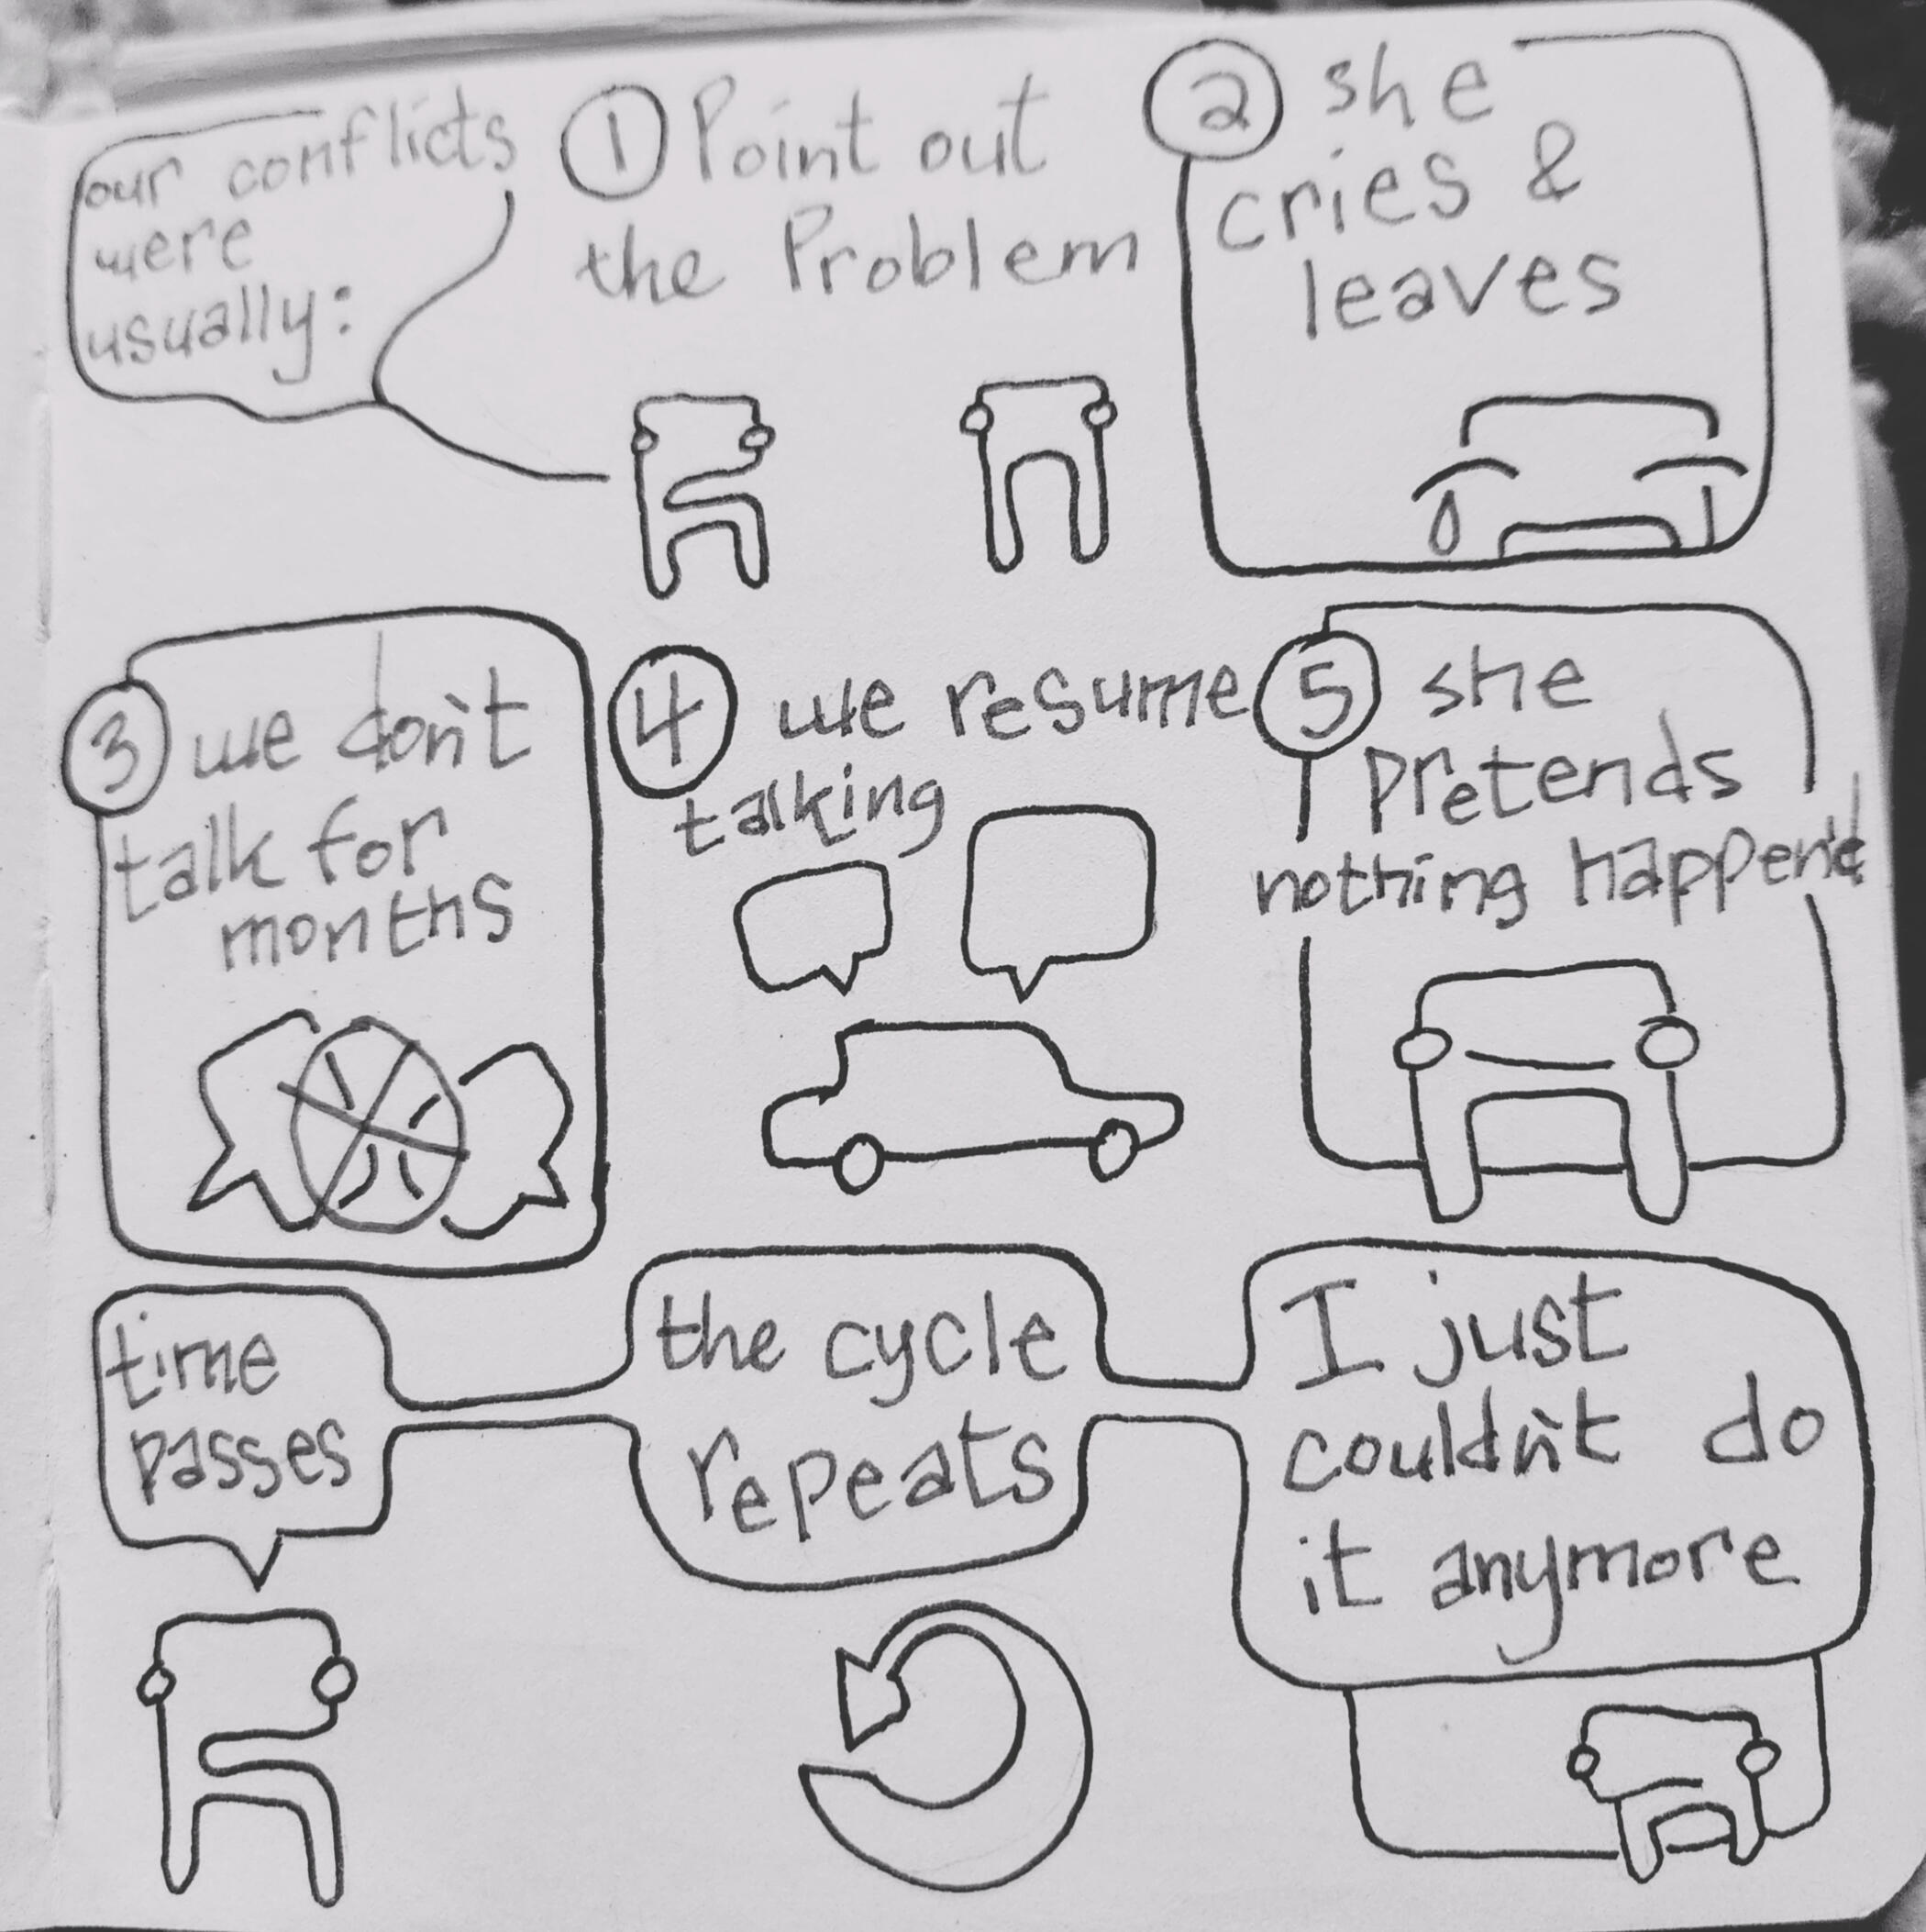 our conflicts
were
usually:
① Point out
the Problem
② she
cries &
leaves
③ we don't
talk for
months
④ we resume
talking
⑤ she
pretends
nothing happen'd
time
passes
the cycle
repeats
I just
couldn't do
it anymore